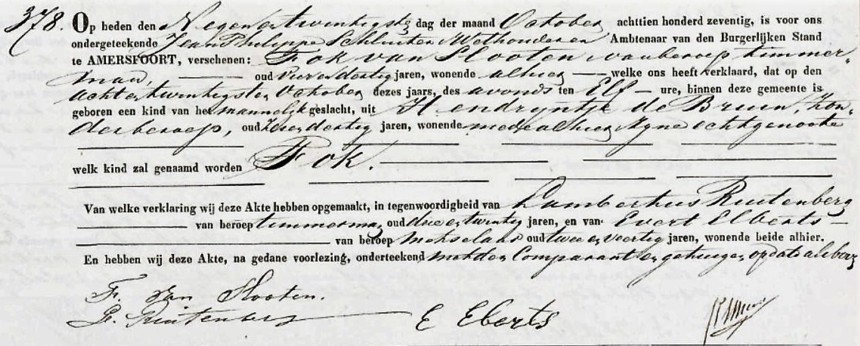 378. Op heden den Negenentwintigste dag der maand October achttien honderd zeventig, is voor ons
ondergeteekende Jean Philippe Schluiter Wethouder en Ambtenaar van den Burgerlijken Stand
te AMERSFOORT, verschenen: Fok van Slooten, van beroep timmer-
man, oud vierendertig jaren, wonende alhier welke ons heeft verklaard, dat op den
achtentwintigsten October dezes jaars, des avonds ten Elf ure, binnen deze gemeente is
geboren een kind van het mannelijk geslacht, uit Hendryntje de Bruin, zon-
der beroep, oud dertig jaren, wonende mede alhier zyne echtgenoote
welk kind zal genaamd worden Fok.
Van welke verklaring wij deze Akte hebben opgemaakt, in tegenwoordigheid van Lambertus Ruitenberg
van beroep timmerman oud drieentwintig jaren, en van Evert Elberts
van beroep metselaar oud tweeenveertig jaren, wonende beide alhier.
En hebben wij deze Akte, na gedane voorlezing, onderteekend met den Comparant en getuigen op dato als boven
F. van Slooten.
L. Ruitenberg E Elberts